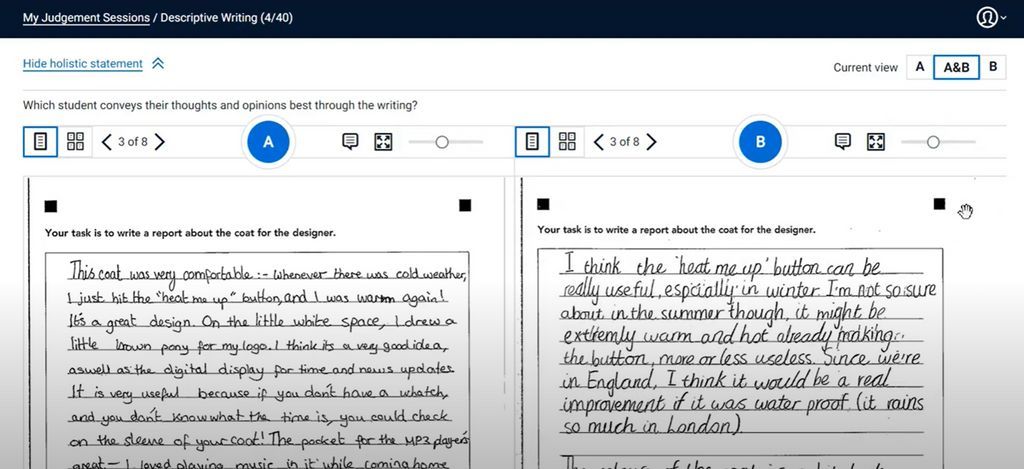 My Judgement Sessions / Descriptive Writing (4/40)
Hide holistic statement
Current view A A&B B
Which student conveys their thoughts and opinions best through the writing?
3 of 8 A
3 of 8 B
Your task is to write a report about the coat for the designer.
This coat was very comfortable :- Whenever there was cold weather,
I just hit the "heat me up" button, and I was warm again!
It's a great design. On the little white space, I drew a
little brown pony for my logo. I think its a very good idea,
aswell as the digital display for time and news updates
It is very useful because if you don't have a whatch,
and you don't know what the time is, you could check
on the sleeve of your coat! The pocket for the MP3 player's
great – I loved playing music in it while coming home
Your task is to write a report about the coat for the designer.
I think the 'heat me up' button can be
really useful, espcially in winter. I'm not so sure
about in the summer though, it might be
extremly warm and hot already making
the button, more or less useless. Since we're
in England, I think it would be a real
improvement if it was water proof (it rains
so much in London).